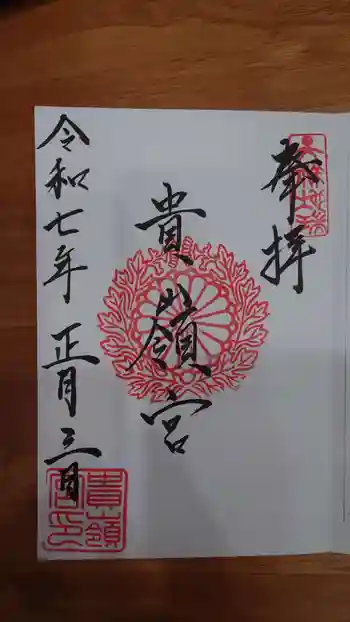 奉拝
貴嶺宮
令和七年正月三日
貴嶺宮印